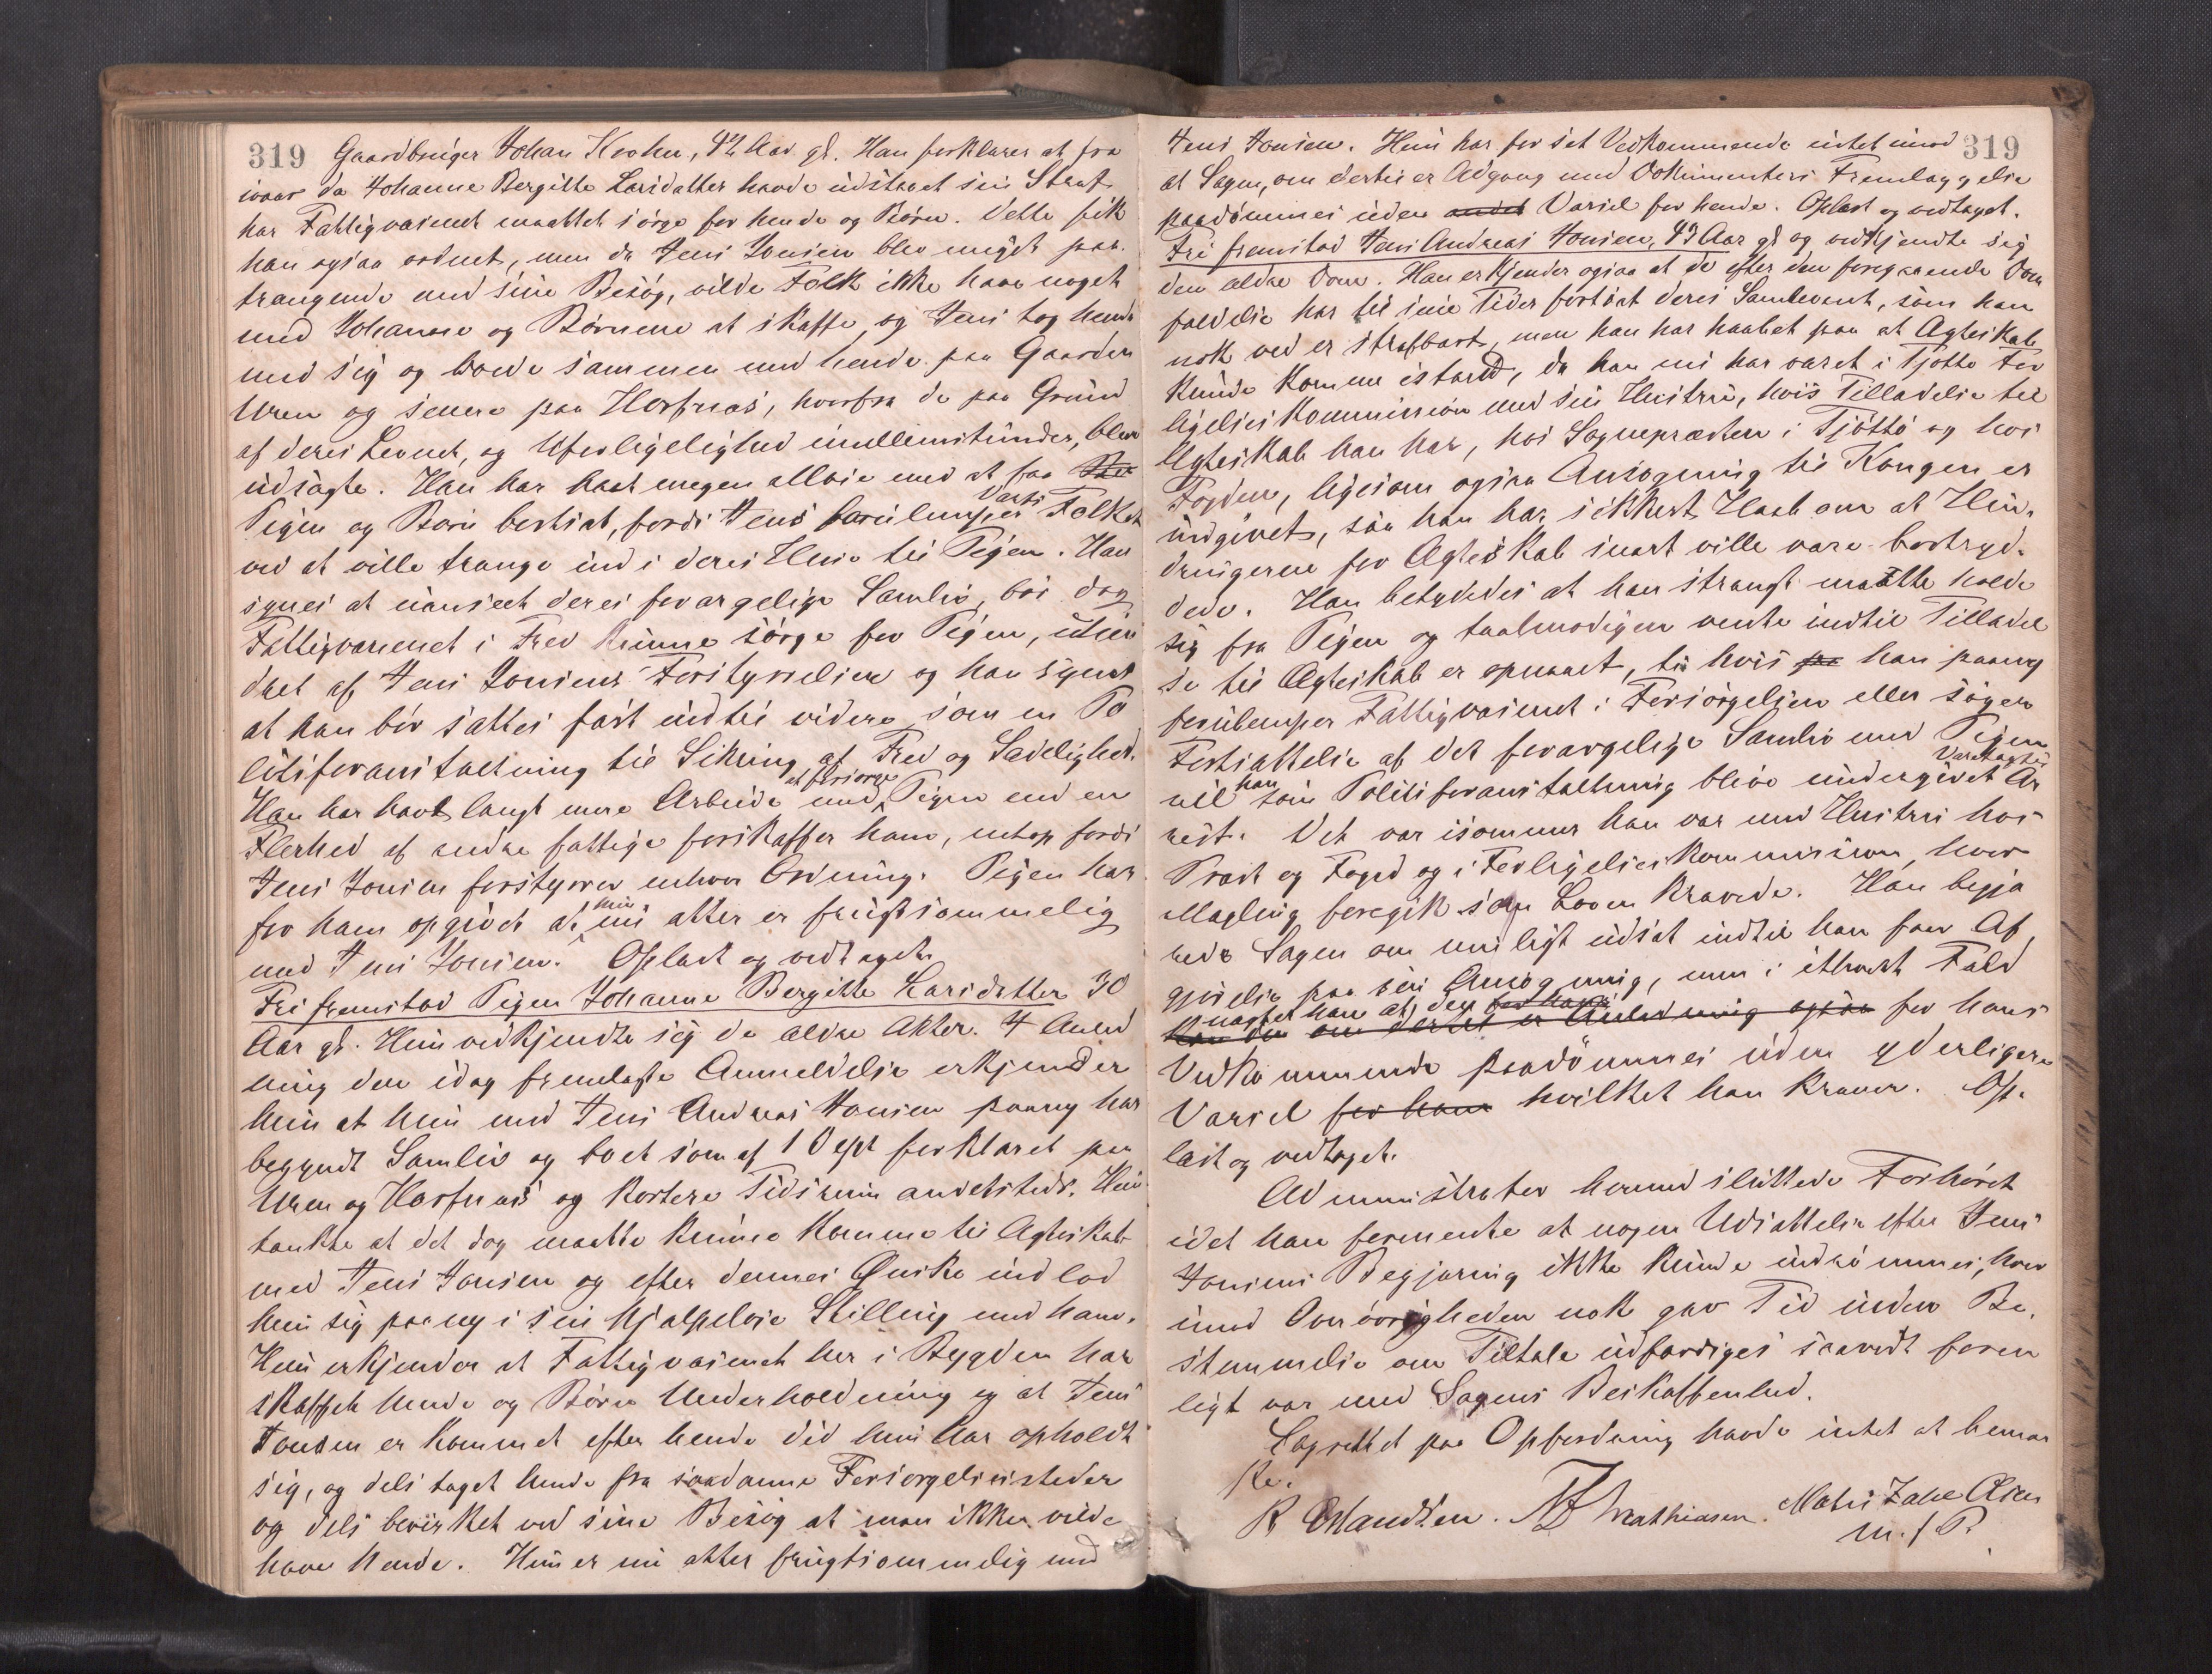 319 Gaardbruger Johan Krohn, 42 Aar gl. Han forklarer at fra
ivaar da Johanne Bergitte Larsdatter havde udstaaet sin Straf
har Fattigvæsenet maattet sørge for hende og Børn. Dette fik
han ogsaa ordnet, men da Jens Jonsen blev meget paa-
trængende med sine Besøg, vilde Folk ikke have noget
med Johanne og Børnene at skaffe, og Jens tog hende
med sig og boede sammen med hende paa Gaarden
Uren og senere paa Horfnæs, hvorfra de paa Grund
af deres Levnet, og Uforligelighed imellemstunder, blev
udsagte. Han har havt megen alleie med at faa
Pigen og Børn bortsat, fordi Jens forulemper Værts Folket
ved at ville trænge ind i deres Huse til Pigen. Han
synes at uanseet deres forargelige Samliv, bør dog
Fattigvæsenet i Fred kunne sørge for Pigen, uhin
dret af Jens Jonsens Forstyrrelser og han synes
at han bør sættes fast indtil videre som en Po
litiforanstaltning til Sikring af Fred og Sædelighed.
Han har havt langt mere Arbeide med at forsørge Pigen end en
Flerhed af andre fattige forskaffer ham, netop fordi
Jens Jonsen forstyrrer enhver Ordning. Pigen har
for ham opgivet at hun nu atter er frugtsommelig
med Jens Jonsen. Oplæst og vedtaget.
Fri fremstod Pigen Johanne Bergitte Larsdatter 30
Aar gl. Hun vedkjendte sig de ældre Akter. I Anled
ning den idag fremlagte Anmeldelse erkjender
hun at hun med Jens Andreas Jonsen paany har
begyndt Samliv og boet som af 1 Dept forklaret paa
Uren og Horfnæs og kortere Tidsrum andetsteds. Hun
tænkte at det dog maatte kunne komme til Ægteskab
med Jens Jonsen og efter dennes Ønske indlod
hun sig paany i sin hjælpeløse Stilling med ham.
Hun erkjender at Fattigvæsenet her i Bygden har
skaffet hende og Børn Underholdning og at Jens
Jonsen er kommet efter hende did hun har opholdt
sig, og dels taget hende fra saadanne Forsørgelsessteder
og dels bevirket ved sine Besøg at man ikke vilde
have hende. Hun er nu atter frugtsommelig med
319
Jens Jonsen. Hun har for sit Vedkommende intet imod
at Sagen, om dertil er Adgang med Dokumenters Fremlæggelse
paadømmes uden andet Varsel for hende. Oplæst og vedtaget.
Fri fremstod Jens Andreas Jonsen, 43 Aar gl og vedkjendte sig
den ældre Dom. Han erkjender ogsaa at de efter den foregaaende Dom
fældelse har til sine Tider fortsat deres Samlevnet, som han
nok ved er strafbart, men han har haabet paa at Ægteskab
kunde komme istand, da han nu har været i Tjøtta For
ligelseskommission med sin Hustru, hvis Tilladelse til
Ægteskab han har, hos Sognepræsten i Tjøttø og hos
Fogden, ligesom ogsaa Ansøgning til Kongen er
indgivet, saa han har sikkert Haab om at Hin-
dringerne for Ægteskab snart ville være bortryd-
dede. Han betydedes at han strængt maatte holde
sig fra Pigen og taalmodigen vente indtil Tilladel
se til Ægteskab er opnaaet, ti hvis han paany
forulemper Fattigvæsenet i Forsørgelsen eller søger
Fortsættelse af det forargelige Samliv med Pigen
vil han som Politiforanstaltning blive undergivet Varetægts Ar
rest. Det var isommer han var med Hustru hos
Præst og Foged og i Forligelseskommission, hvor
Mægling foregik som Loven krævede. Han begjæ
rede Sagen om muligt udsat indtil han faar Af
gjørelse paa sin Ansøgning, men i ethvert Fald
at den om dertil er Anledning ogsaa for hans
Vedkommende paadømmes uden yderligere
Varsel for ham hvilket han kræver. Op-
læst og vedtaget.
Administrator hermed sluttede Forhøret
idet han formente at nogen Udsættelse efter Jens
Jonsens Begjæring ikke kunde indrømmes, hvor
imod Overøvrigheden nok gav Tid inden Be-
stemmelse om Tiltale udfærdiges saavidt foren
ligt var med Sagens Beskaffenhed.
Lagrettet paa Opfordring havde intet at bemær
ke.
Mathiasen.
m. f P.